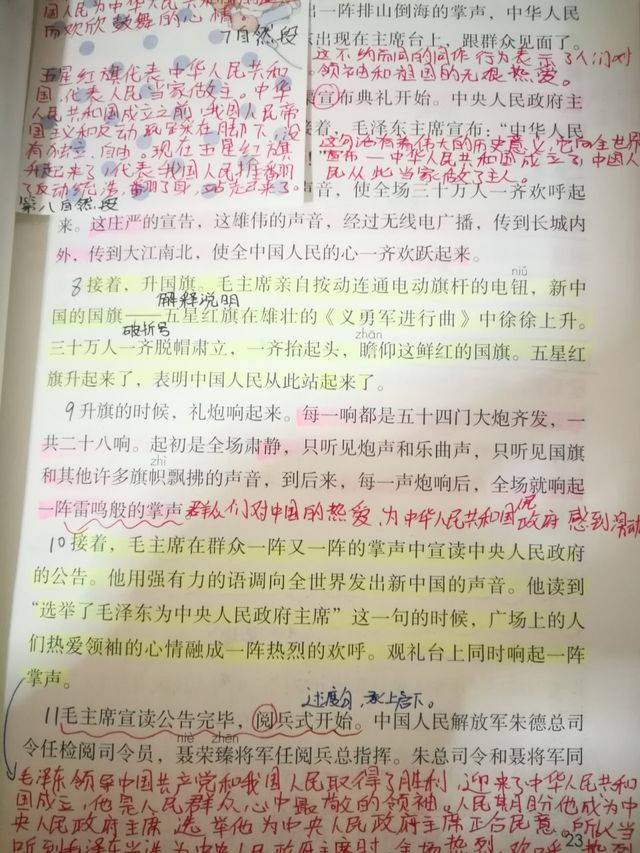 国人民为中华人民共和国
而欢欣鼓舞的心情
7自然段
五星红旗代表中华人民共和
国,代表人民当家做主。中华
人民共和国成立之前,我国人民帝
国主义和反动 在脚下,没
有独立、自由。现在五星红旗
升起来了,代表我国人民推翻
了反动统治,翻了身,站起来了。
第八自然段
出一阵排山倒海的掌声,中华人民
出现在主席台上,跟群众见面了。
这不约而同的动作行为表示了人们对
领袖和祖国的无限热爱。
宣布典礼开始。中央人民政府主
接着,毛泽东主席宣布:“中华人民
这句话有着伟大的历史意义,它向全世界
宣布——中华人民共和国成立了,中国人
民从此当家做了主人。
声音,使全场三十万人一齐欢呼起
来。这庄严的宣告,这雄伟的声音,经过无线电广播,传到长城内
外,传到大江南北,使全中国人民的心一齐欢跃起来。
niǔ
8接着,升国旗。毛主席亲自按动连通电动旗杆的电钮,新中
解释说明
国的国旗——五星红旗在雄壮的《义勇军进行曲》中徐徐上升。
破折号
zhān
三十万人一齐脱帽肃立,一齐抬起头,瞻仰这鲜红的国旗。五星红
旗升起来了,表明中国人民从此站起来了。
9升旗的时候,礼炮响起来。每一响都是五十四门大炮齐发,一
共二十八响。起初是全场肃静,只听见炮声和乐曲声,只听见国旗
zhì
和其他许多旗帜飘拂的声音,到后来,每一声炮响后,全场就响起
一阵雷鸣般的掌声 群众们对中国的热爱,为中华人民共和国 政府 感到激动
10接着,毛主席在群众一阵又一阵的掌声中宣读中央人民政府
的公告。他用强有力的语调向全世界发出新中国的声音。他读到
“选举了毛泽东为中央人民政府主席”这一句的时候,广场上的人
们热爱领袖的心情融成一阵热烈的欢呼。观礼台上同时响起一阵
掌声。
过渡句,承上启下。
11毛主席宣读公告完毕,阅兵式开始。中国人民解放军朱德总司
niè zhēn
令任检阅司令员,聂荣臻将军任阅兵总指挥。朱总司令和聂将军同
毛泽东领导中国共产党和我国人民取得了胜利,迎来了中华人民共和
国成立,他是人民群众心中最敬的领袖。人民 他成为中
央人民政府主席 选举他为中央人民政府主席正合民意。所以当
23
听到毛泽东当选为中央人民政府主席时 全场热烈 欢呼 热烈